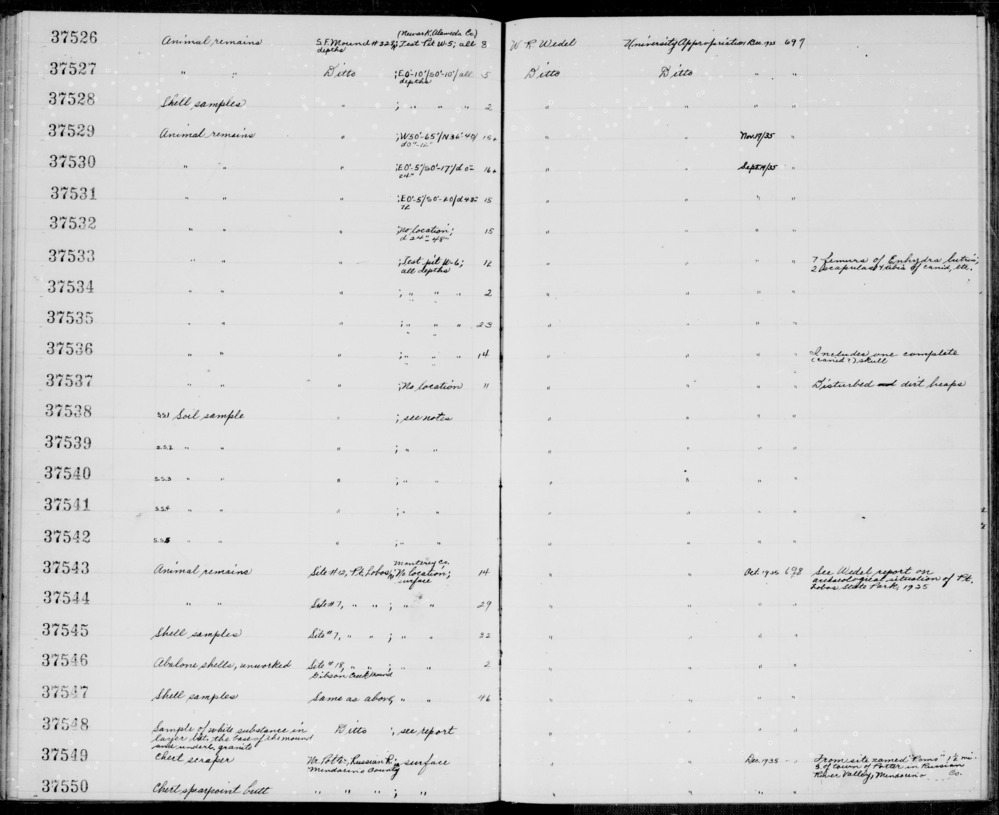 37526 Animal remains S.F. Mound #328, (Newark, Alameda Co.) ; Test Pit W-5; all depths 8 W R Wedel University Appropriation Dec. 1935 697
37527 " " Ditto ; E0'-10'/S0'-10'/all depths 5 Ditto Ditto " "
37528 Shell samples " ; " " " 2 " " " "
37529 Animal remains " ; W50'-65'/N36'-40/ d0"-12" 15+ " " Nov. 19/35 "
37530 " " " ; E0'-5'/S0'-17'/d 0"-24" 16+ " " Sept. 14/35 "
37531 " " " ; E0'-5'/S0'-20/d 48"-72 15 " " " "
37532 " " " ; No location; d 24"-48" 15 " " " "
37533 " " " ; Test pit W-6; all depths 12 " " " " 7 femurs of Enhydra lutris; 2 scapulas & tibia of canid, etc.
37534 " " " ; " " " 2 " " " "
37535 " " " ; " " " 23 " " " "
37536 " " " ; " " " 14 " " " " Includes one complete (canid?) skull
37537 " " " ; No location 11 " " " " Disturbed and dirt heaps
37538 S.S.1 Soil sample " ; see notes " " " "
37539 S.S.2 " " " ; " " " " " "
37540 S.S.3 " " " ; " " " " " "
37541 S.S.4 " " " ; " " " " " "
37542 S.S.5 " " " ; " " " " " "
37543 Animal remains Site #12, Pt. Lobos, Monterey Co. ; No location; surface 14 " " Oct. 1935 698 See Wedel report on archaeological situation of Pt. Lobos State Park, 1935
37544 " " Site #7, " " ; " " 29 " " " "
37545 Shell samples Site #7, " " ; " " 32 " " " "
37546 Abalone shells, unworked Site #18, " " ; " " Gibson Creek mound 2 " " " "
37547 Shell samples Same as above, " " 46 " " " "
37548 Sample of white substance in layer bet. the base of the mound and underl. granite Ditto ; see report " " " "
37549 Chert scraper Nr. Potter, Russian R., Mendocino County ; surface " " Dec. 1935 " From site named "Pomo" 1½ mi. S. of town of Potter in Russian River Valley, Mendocino Co.
37550 Chert spearpoint butt " " " " ; " " " " "